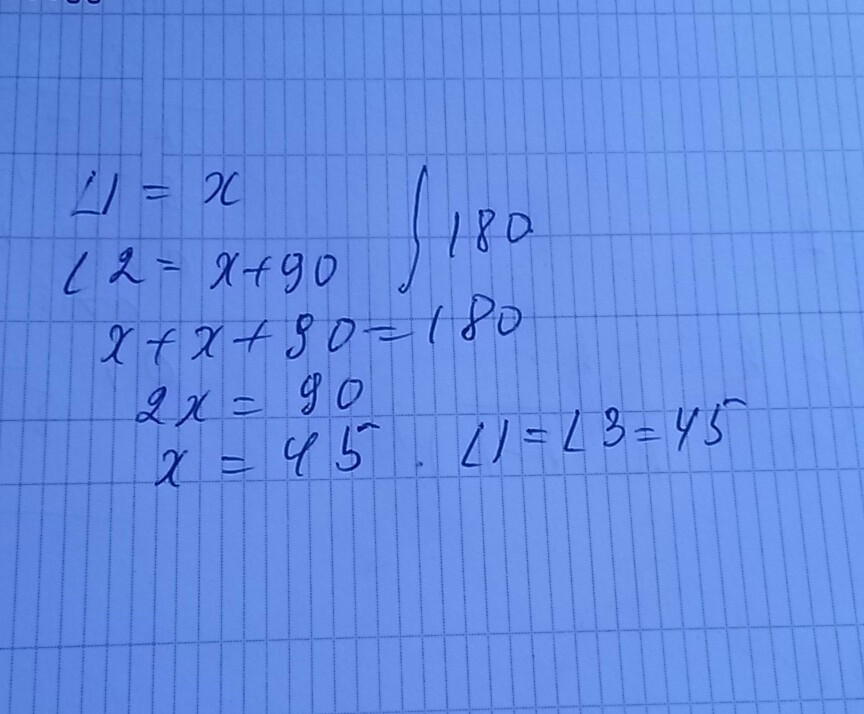 ∠1 = x
∠2 = x+90 } 180
x + x + 90 = 180
2x = 90
x = 45 . ∠1 = ∠3 = 45